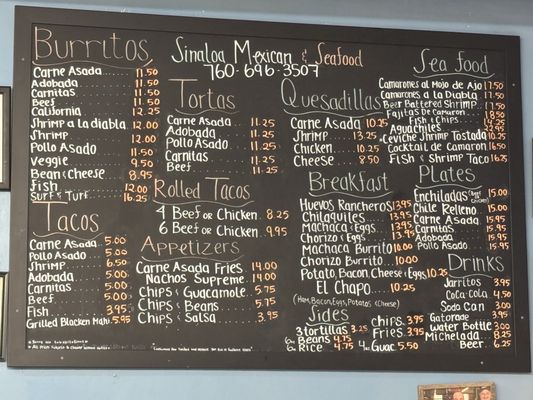 Sinaloa Mexican & Seafood
760-696-3507
Burritos
Carne Asada 11.50
Adobada 11.50
Carnitas 11.50
Beef 11.50
California 12.25
Shrimp a la diabla 12.00
Shrimp 12.00
Pollo Asado 11.50
Veggie 9.50
Bean & Cheese 8.95
Fish 12.00
Surf & Turf 16.25
Tacos
Carne Asada 5.00
Pollo Asado 5.00
Shrimp 6.50
Adobada 5.00
Carnitas 5.00
Beef 5.00
Fish 3.95
Grilled Blacken Mahi 5.95
Tortas
Carne Asada 11.25
Adobada 11.25
Pollo Asado 11.25
Carnitas 11.25
Beef 11.25
Rolled Tacos
4 Beef or Chicken 8.25
6 Beef or Chicken 9.95
Appetizers
Carne Asada Fries 14.00
Nachos Supreme 14.00
Chips & Guacamole 5.75
Chips & Beans 5.75
Chips & Salsa 3.95
Quesadillas
Carne Asada 10.25
Shrimp 13.25
Chicken 10.25
Cheese 8.50
Breakfast
Huevos Rancheros 13.95
Chilaquiles 13.95
Machaca & Eggs 13.95
Chorizo & Eggs 13.95
Machaca Burrito 10.00
Chorizo Burrito 10.00
Potato, Bacon, Cheese & Eggs 10.25
El Chapo 10.25
(Ham, Bacon, Eggs, Potatoes & Cheese)
Sides
3 tortillas 3.25
6oz Beans 4.75
6oz Rice 4.75
chips 3.95
Fries 3.95
4oz Guac 5.50
Sea food
Camarones al Mojo de Ajo 17.50
Camarones a la Diabla 17.50
Beer Battered Shrimp 17.50
Fajitas de Camaron 18.50
Fish & Chips
Aguachiles
Ceviche Shrimp Tostada 10.25
Cocktail de Camaron 16.50
Fish & Shrimp Taco 16.25
Plates
Enchiladas 15.00
Chile Relleno 15.00
Carne Asada 15.95
Carnitas 15.95
Adobada 15.95
Pollo Asado 15.95
Drinks
Jarritos 3.95
Coca-Cola 4.50
Soda Can 3.00
Gatorade 3.95
Water Bottle 3.00
Michelada 8.25
Beer 6.25